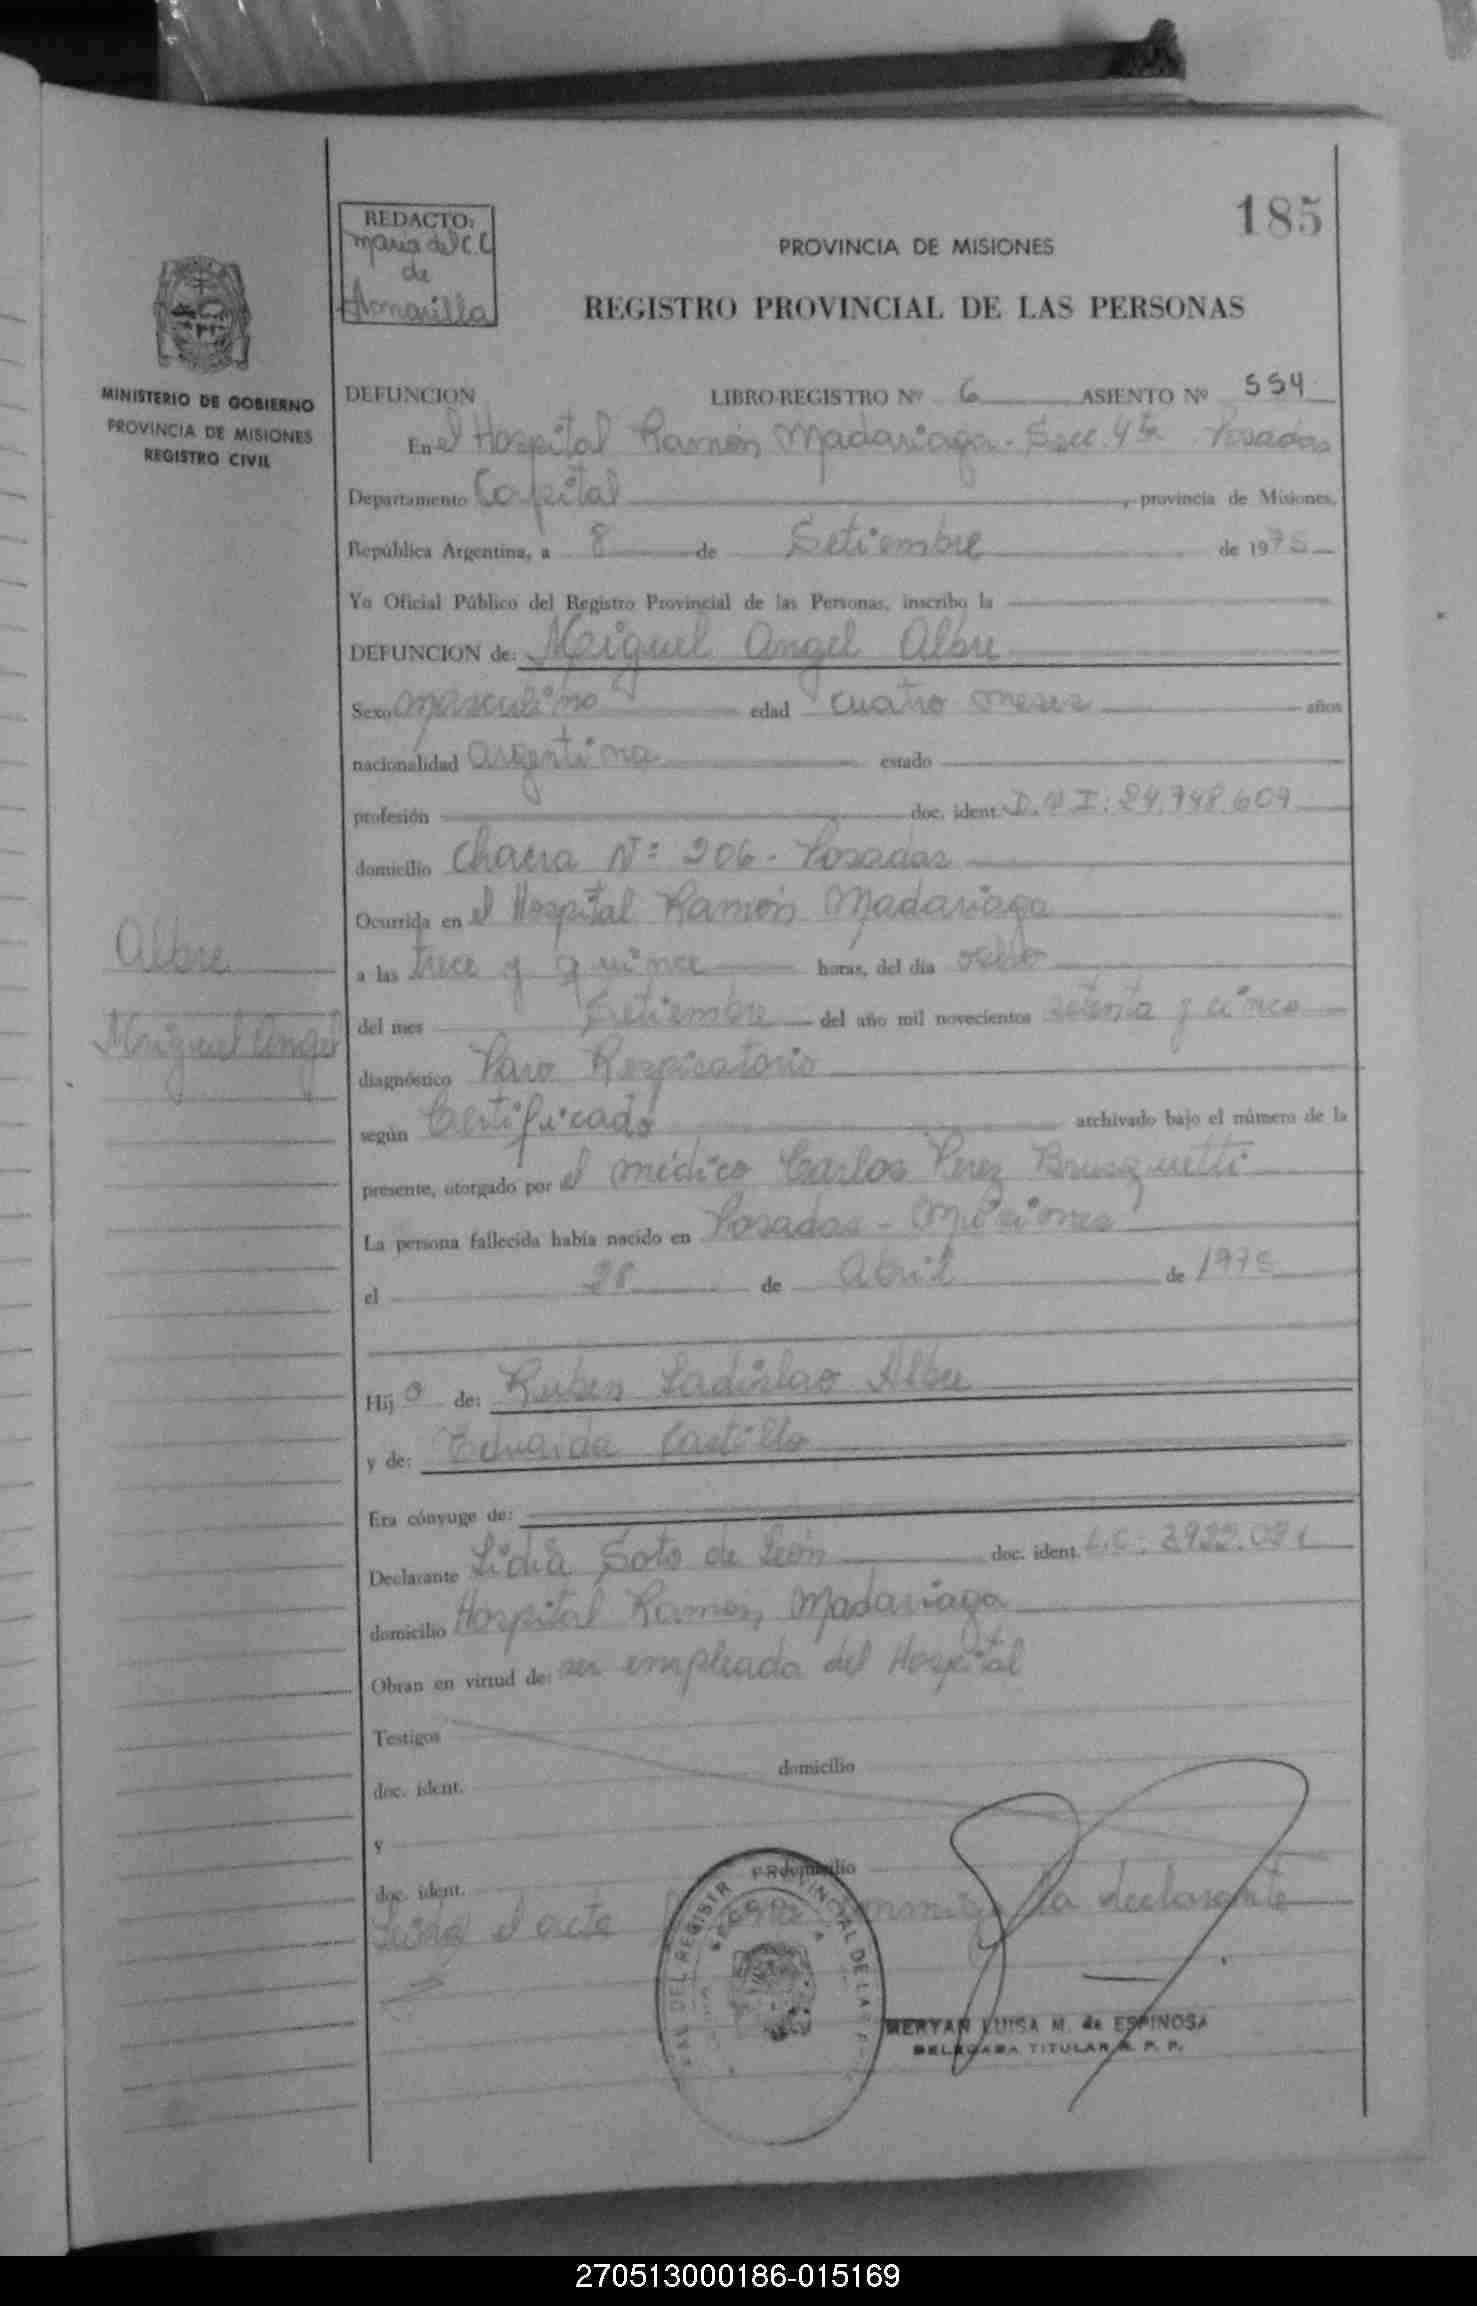 185
REDACTO:
Maria del C.C
de
PROVINCIA DE MISIONES
REGISTRO PROVINCIAL DE LAS PERSONAS
MINISTERIO DE GOBIERNO
PROVINCIA DE MISIONES
REGISTRO CIVIL
DEFUNCION LIBRO-REGISTRO Nº 6 ASIENTO Nº 554
En el Hospital Ramón Madariaga - Secc. 4ta Posadas
Departamento Capital, provincia de Misiones,
República Argentina, a 8 de Setiembre de 1975
Yo Oficial Público del Registro Provincial de las Personas, inscribo la
DEFUNCION de: Miguel Angel Albre
Sexo masculino edad cuatro meses años
nacionalidad argentina estado
profesión doc. ident. D.N.I: 24.748.609
domicilio Chacra Nº 206 - Posadas
Ocurrida en el Hospital Ramón Madariaga
a las trece y quince horas, del día ocho
del mes Setiembre del año mil novecientos setenta y cinco
diagnóstico Paro Respiratorio
según Certificado archivado bajo el número de la
presente, otorgado por el médico Carlos Perez Brusquetti
La persona fallecida había nacido en Posadas - Misiones
el 28 de Abril de 1975
Hij o de: Ruben Ladislao Albre
y de: Eduarda Castillo
Era cónyuge de:
Declarante Lidia Soto de León doc. ident. L.C: 3.922.031
domicilio Hospital Ramon Madariaga
Obran en virtud de: ser empleada del Hospital
Testigos
domicilio
doc. ident.
y
domicilio
doc. ident.
Leida el acta la declarante
Albre
Miguel Angel
DEL REGISTR PROVINCIAL DE LAS
MERYAN LUISA M. de ESPINOSA
DELEGADA TITULAR R. P. P.
270513000186-015169